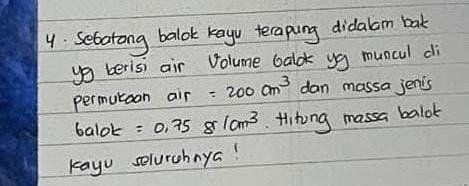 4. Sebatang balok kayu terapung didalam bak
yg berisi air Volume balok yg muncul di
permukaan air = 200 cm³ dan massa jenis
balok = 0,75 gr/cm³. Hitung massa balok
kayu seluruhnya!